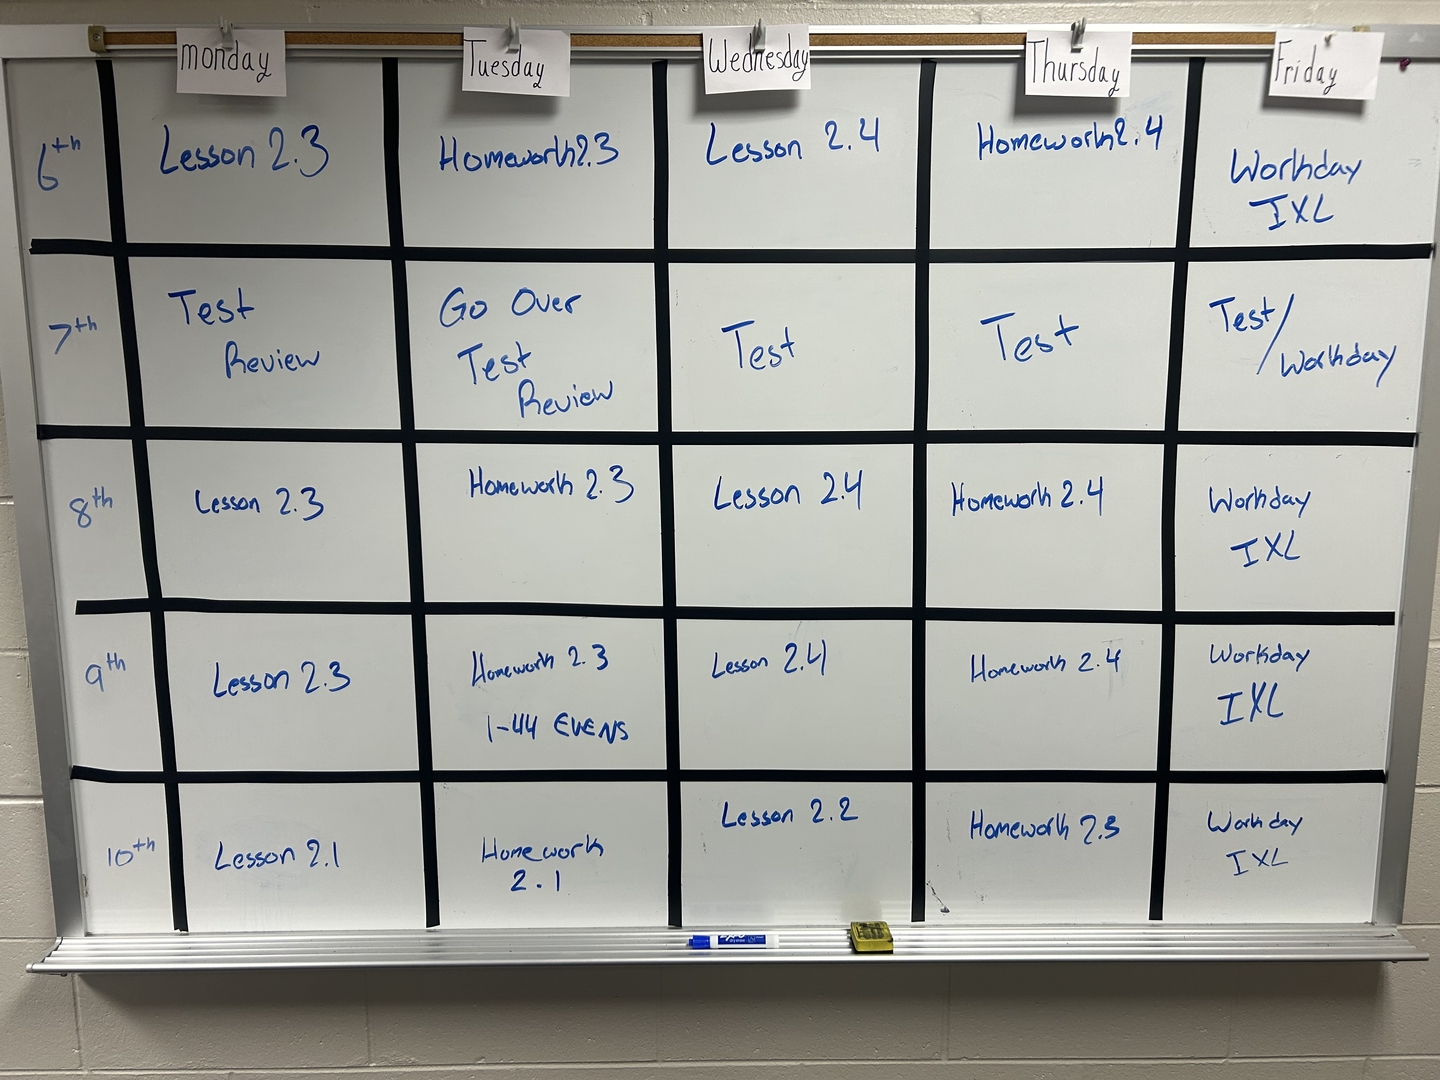 monday
Tuesday
Wednesday
Thursday
Friday
6th
Lesson 2.3
Homework 2.3
Lesson 2.4
Homework 2.4
Workday
IXL
7th
Test
Review
Go Over
Test
Review
Test
Test
Test/
Workday
8th
Lesson 2.3
Homework 2.3
Lesson 2.4
Homework 2.4
Workday
IXL
9th
Lesson 2.3
Homework 2.3
1-44 EVENS
Lesson 2.4
Homework 2.4
Workday
IXL
10th
Lesson 2.1
Homework
2.1
Lesson 2.2
Homework
Workday
IXL